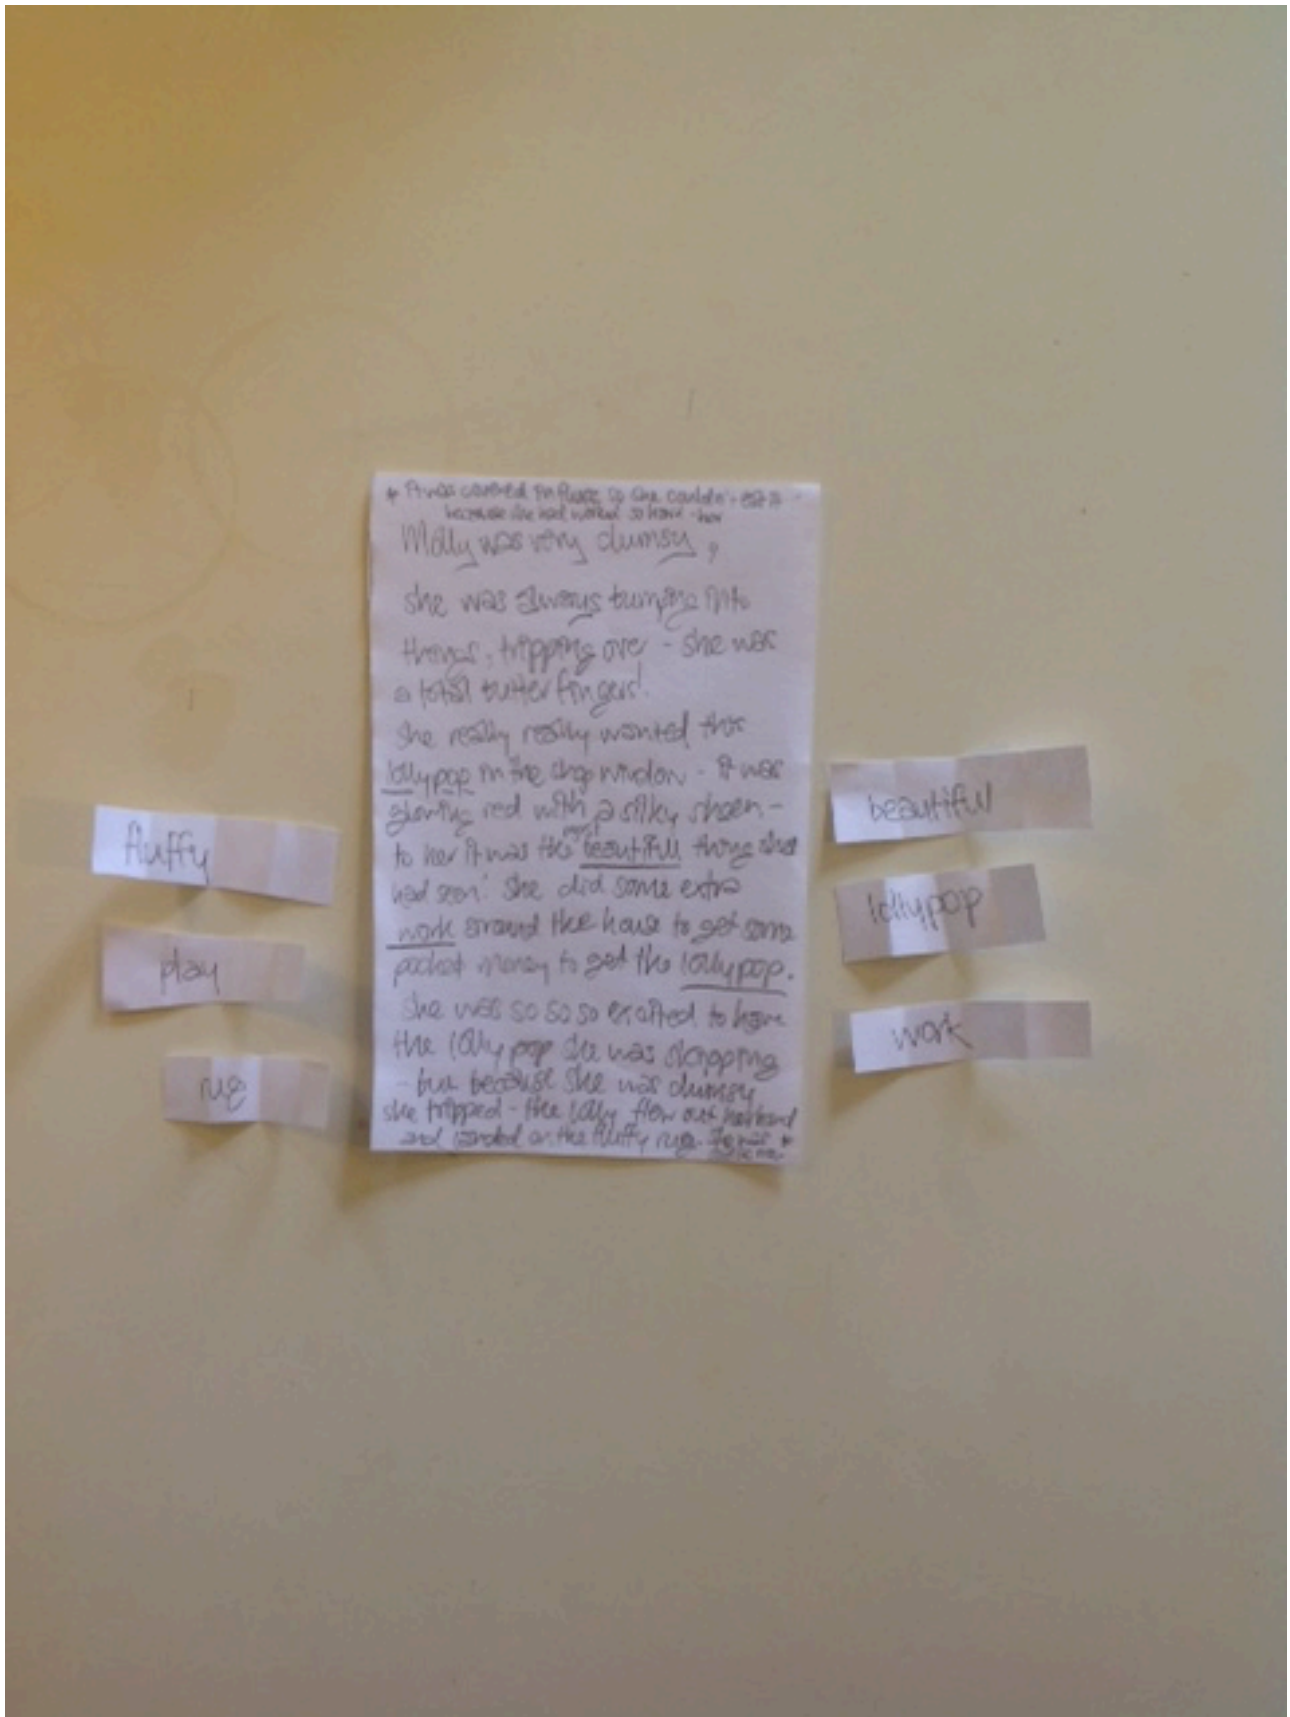 * It was covered in fluff so she couldn't eat it
because she had worked so hard - her
Molly was very clumsy,
she was always bumping into
things, tripping over - she was
a total butter fingers!
She really really wanted this
lollypop in the shop window - it was
glowing red with a silky sheen -
to her it was the most beautiful thing she
had seen! She did some extra
work around the house to get some
pocket money to get the lollypop.
She was so so so excited to have
the lolly pop she was skipping
- but because she was clumsy
she tripped - the lolly flew out her hand
and landed on the fluffy rug. *
fluffy
play
rug
beautiful
lollypop
work